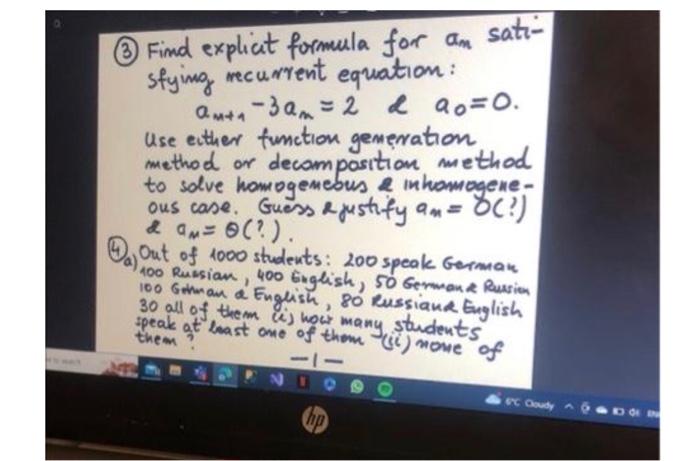 ③ Find explicit formula for aₙ sati-
sfying recurrent equation:
aₙ₊₁ - 3aₙ = 2 & a₀ = 0.
Use either function generation
method or decomposition method
to solve homogeneous & inhomogene-
ous case. Guess & justify aₙ = O(?)
& aₙ = Θ(?).
④a) Out of 1000 students: 200 speak German
100 Russian, 400 English, 50 German & Russian
100 German & English, 80 Russian & English
30 all of them (i) how many students
speak at least one of them (ii) none of
them?
—1—
6°C Cloudy
hp